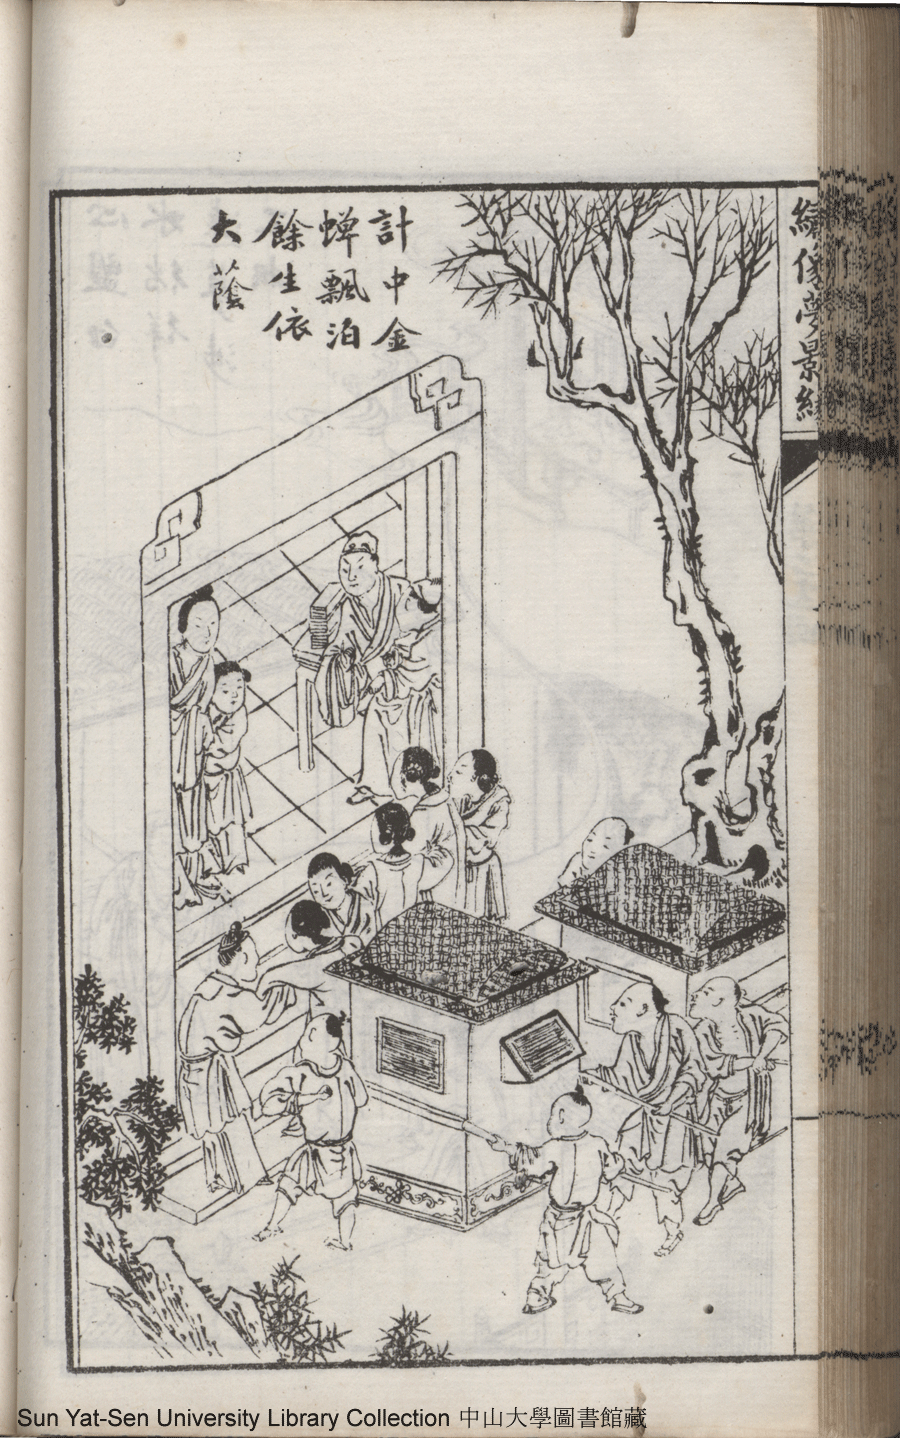 計中金
蟬飄泊
餘生依
大蔭
繪像夢景緣
Sun Yat-Sen University Library Collection 中山大學圖書館藏